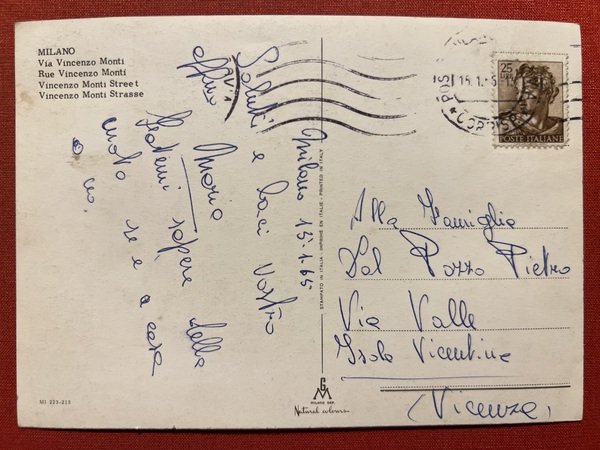 MILANO
Via Vincenzo Monti
Rue Vincenzo Monti
Vincenzo Monti Street
Vincenzo Monti Strasse
Milano 15.1.65
Saluti e baci Vostro
Mario
Fatemi sapere della
moto se è a casa
o no.
STAMPATO IN ITALIA - IMPRIME EN ITALIE - PRINTED IN ITALY
25
POSTE ITALIANE
Alla Famiglia
Dal Pozzo Pietro
Via Valle
Isola Vicentina
(Vicenza)
MI 223-213
GM
MILANO DEP.
Natural colours